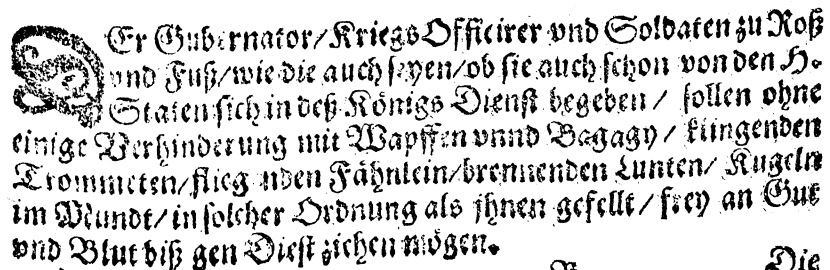 DEr Gubernator/Kriegs Officirer vnd Soldaten zu Roß
vnd Fuß/wie die auch seyen/ob sie auch schon von den H.
Staten sich in deß Königs Dienst begeben/ sollen ohne
einige Verhinderung mit Wapffen vnnd Bagagy/ klingenden
Trommeten/flieg nden Fähnlein/brennenden Lunten/ Kugeln
im Mundt/in solcher Ordnung als jhnen gefellt/frey an Gut
vnd Blut biß gen Diest ziehen mögen.
Die